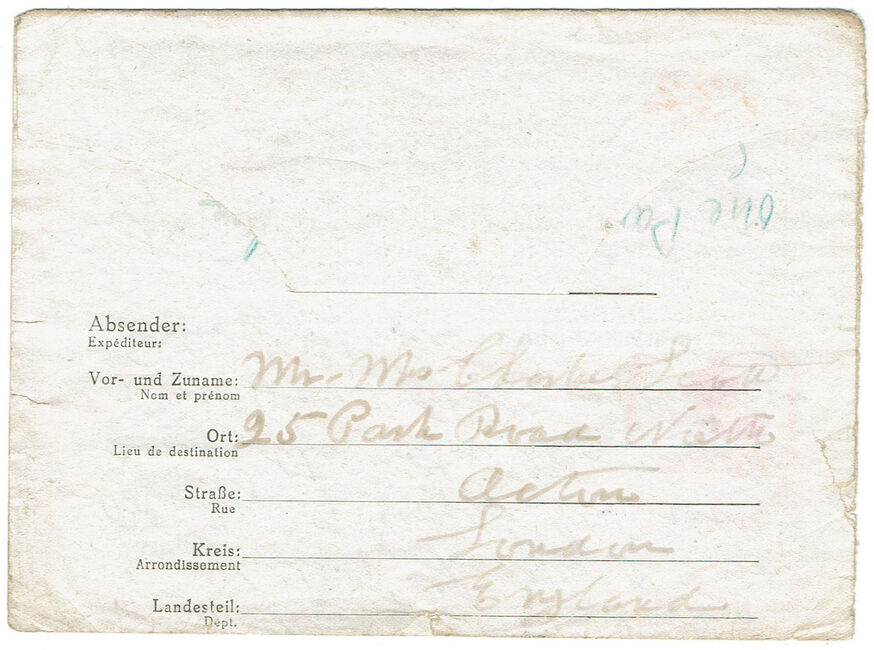 One Par
Absender:
Expéditeur:
Vor- und Zuname: Mr. Mrs Charles Scott
Nom et prénom
Ort: 25 Park Road North
Lieu de destination
Straße: Acton
Rue
Kreis: London
Arrondissement
Landesteil: England
Dépt.